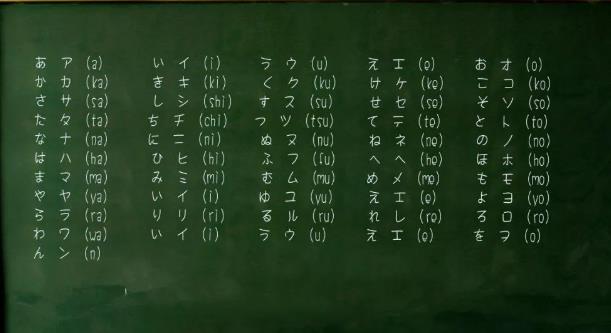 あ ア (a) い イ (i) う ウ (u) え エ (e) お オ (o)
か カ (ka) き キ (ki) く ク (ku) け ケ (ke) こ コ (ko)
さ サ (sa) し シ (shi) す ス (su) せ セ (se) そ ソ (so)
た タ (ta) ち チ (chi) つ ツ (tsu) て テ (te) と ト (to)
な ナ (na) に ニ (ni) ぬ ヌ (nu) ね ネ (ne) の ノ (no)
は ハ (ha) ひ ヒ (hi) ふ フ (fu) へ ヘ (he) ほ ホ (ho)
ま マ (ma) み ミ (mi) む ム (mu) め メ (me) も モ (mo)
や ヤ (ya) い イ (i) ゆ ユ (yu) え エ (e) よ ヨ (yo)
ら ラ (ra) り リ (ri) る ル (ru) れ レ (re) ろ ロ (ro)
わ ワ (wa) い イ (i) う ウ (u) え エ (e) を ヲ (o)
ん ン (n)